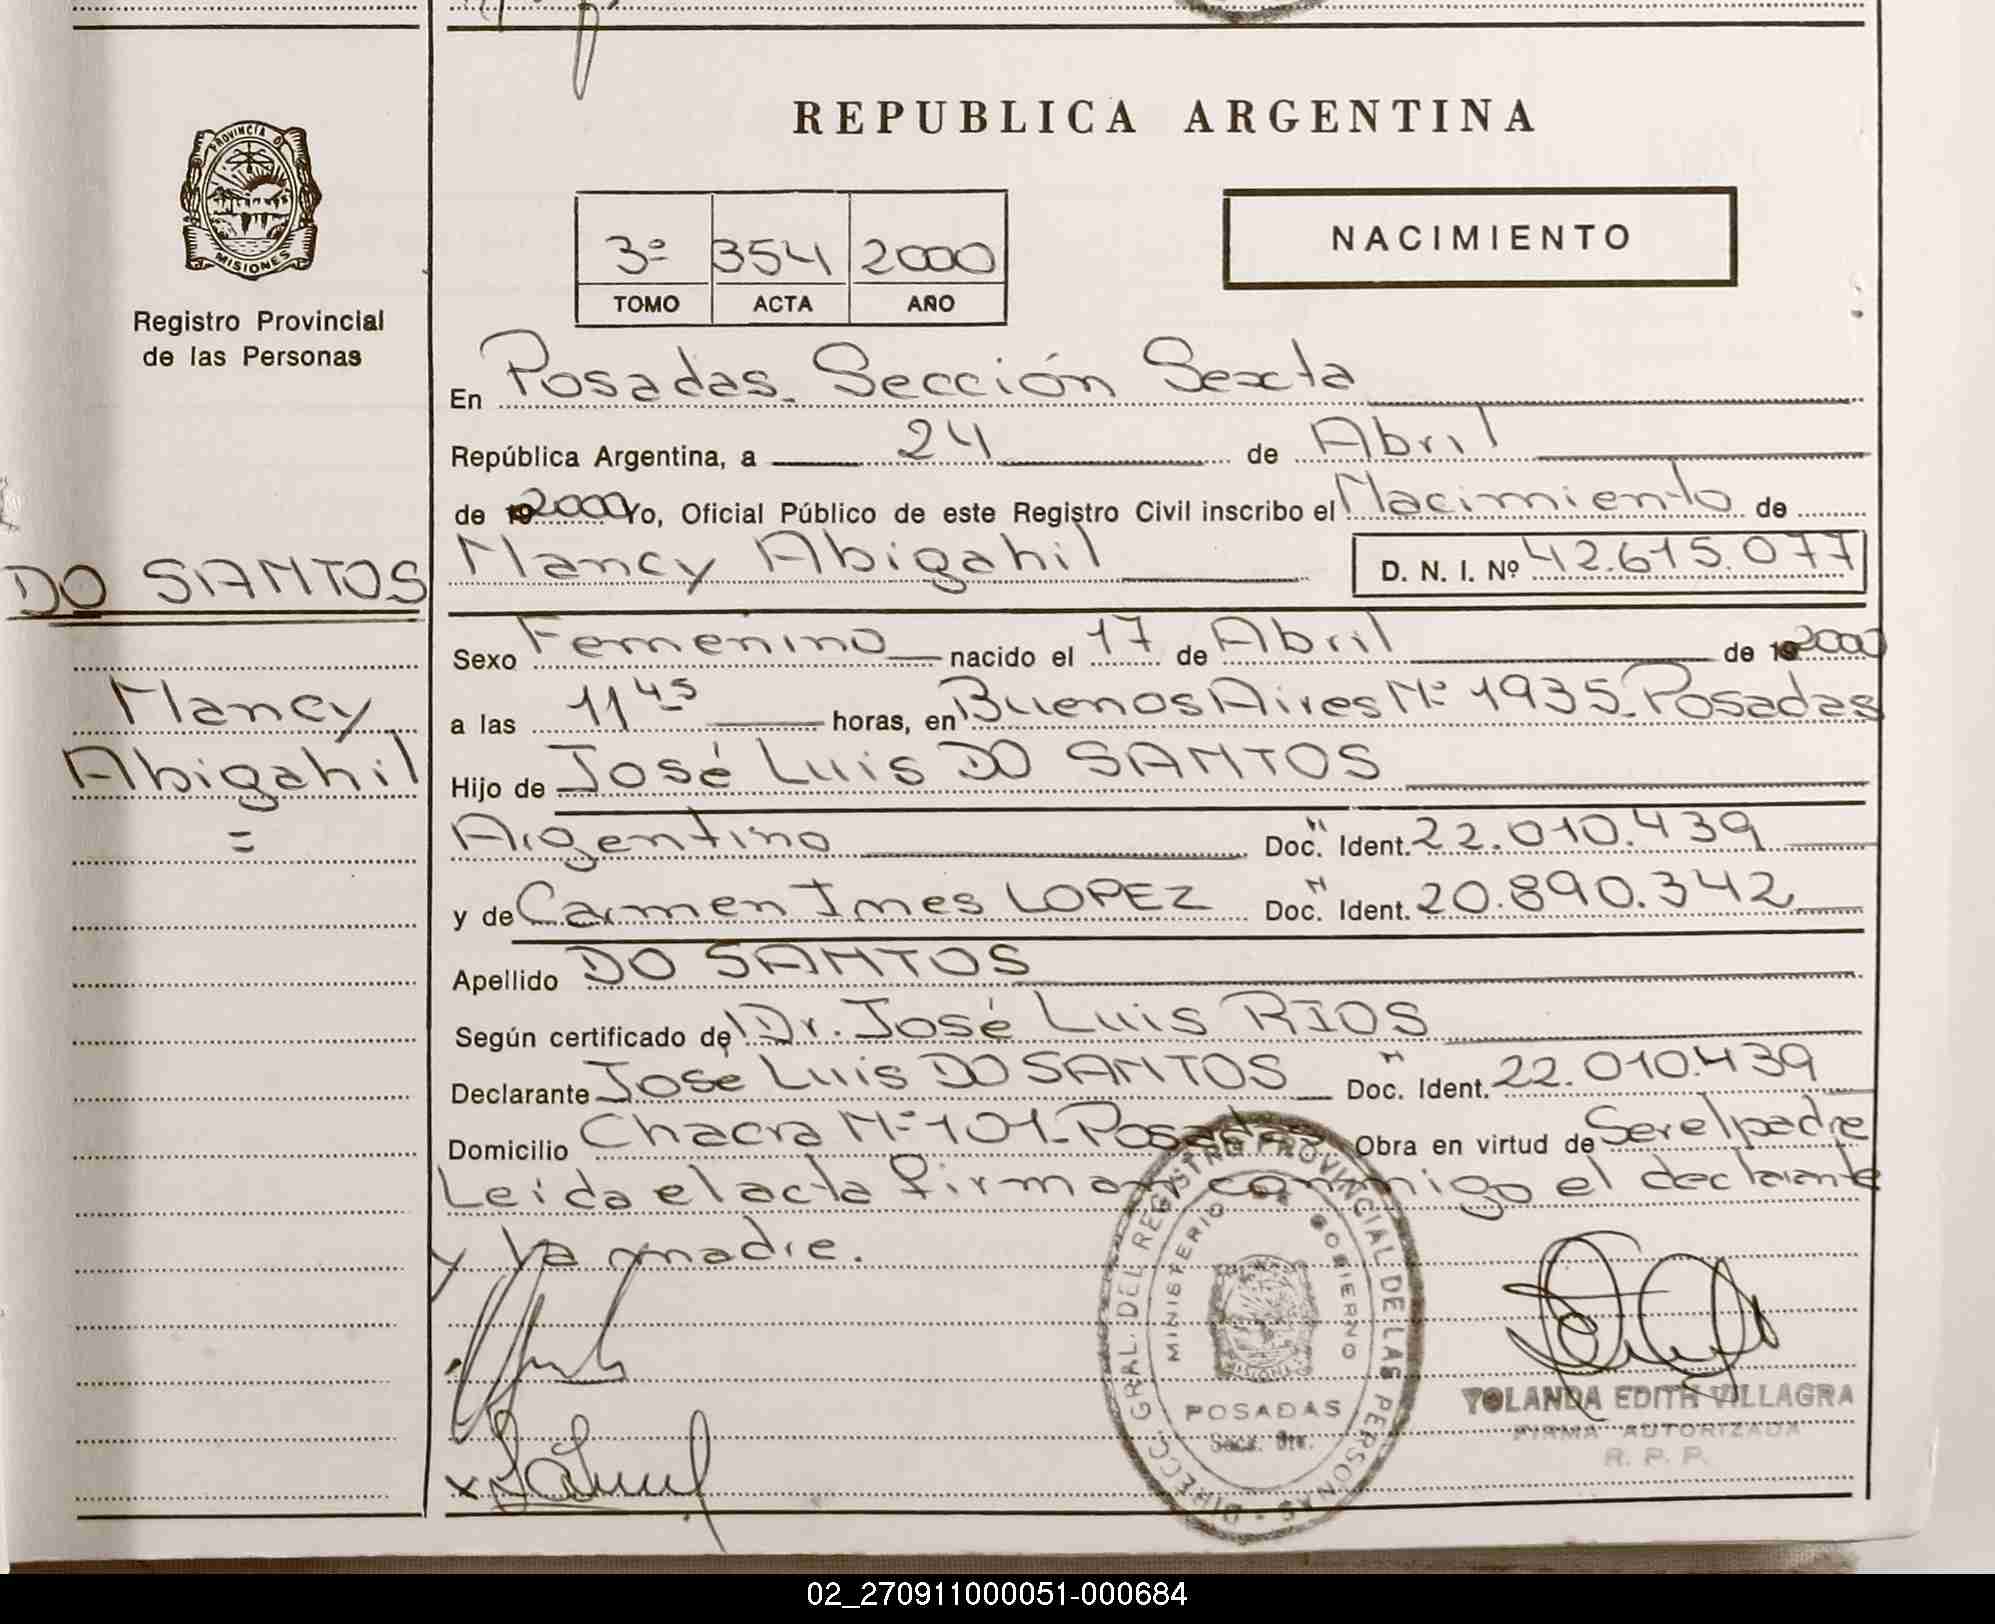 REPUBLICA ARGENTINA
PROVINCIA D
MISIONES
Registro Provincial
de las Personas
3º 354 2000
TOMO ACTA AÑO
NACIMIENTO
En Posadas. Sección Sexta
República Argentina, a 24 de Abril
de 19 2000 Yo, Oficial Público de este Registro Civil inscribo el Nacimiento de
DO SANTOS
Nancy Abigahil D. N. I. Nº 42.615.077
Sexo Femenino nacido el 17 de Abril de 19 2000
Nancy
Abigahil
=
a las 11 45 horas, en Buenos Aires Nº 1935. Posadas
Hijo de José Luis DO SANTOS
Argentino Doc. N Ident. 22.010.439
y de Carmen Ines LOPEZ Doc. N Ident. 20.890.342
Apellido DO SANTOS
Según certificado de Dr. José Luis RIOS
Declarante Jose Luis DO SANTOS Doc. N Ident. 22.010.439
Domicilio Chacra Nº 101-Posadas Obra en virtud de Ser el padre
Leida el acta firman conmigo el declarante
y la madre.
DIRECC. GRAL. DEL REGISTRO PROVINCIAL DE LAS PERSONAS
MINISTERIO DE GOBIERNO
MISIONES
POSADAS
YOLANDA EDITH VILLAGRA
FIRMA AUTORIZADA
R. P. P.
02_270911000051-000684